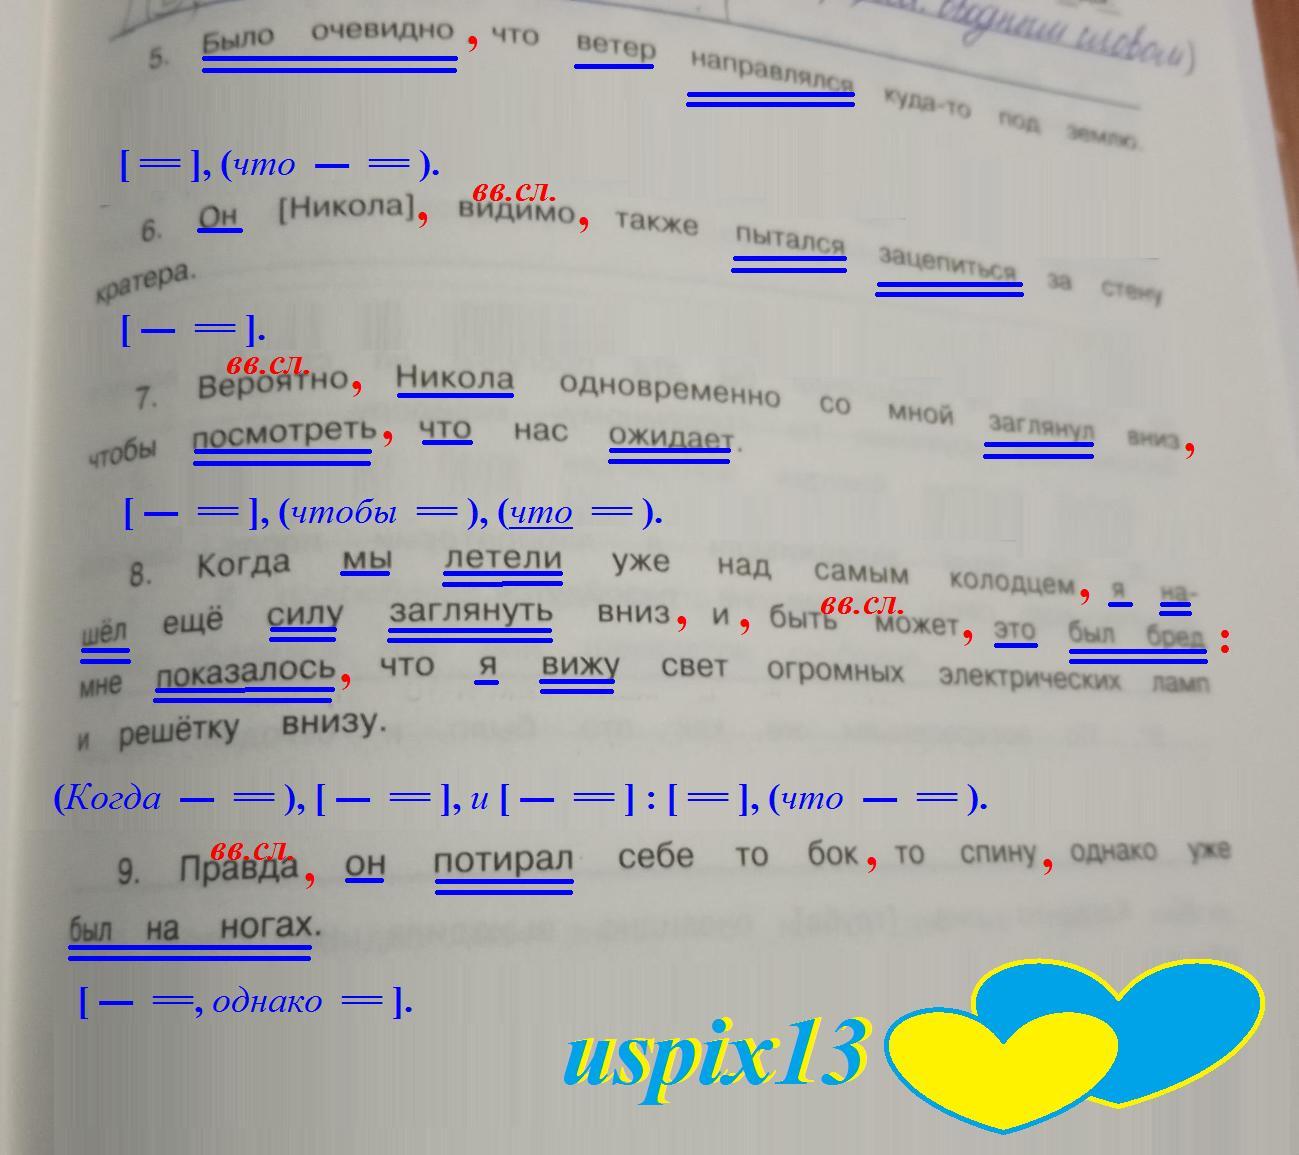 водным словом)
5. Было очевидно, что ветер направлялся куда-то под землю.
[ ═ ], (что — ═ ).
вв.сл.
6. Он [Никола], видимо, также пытался зацепиться за стену
кратера.
[ — ═ ].
вв.сл.
7. Вероятно, Никола одновременно со мной заглянул вниз,
чтобы посмотреть, что нас ожидает.
[ — ═ ], (чтобы ═ ), (что ═ ).
8. Когда мы летели уже над самым колодцем, я на-
вв.сл.
шёл ещё силу заглянуть вниз, и, быть может, это был бред:
мне показалось, что я вижу свет огромных электрических ламп
и решётку внизу.
(Когда — ═ ), [ — ═ ], и [ — ═ ] : [ ═ ], (что — ═ ).
вв.сл.
9. Правда, он потирал себе то бок, то спину, однако уже
был на ногах.
[ — ═, однако ═ ].
uspix13